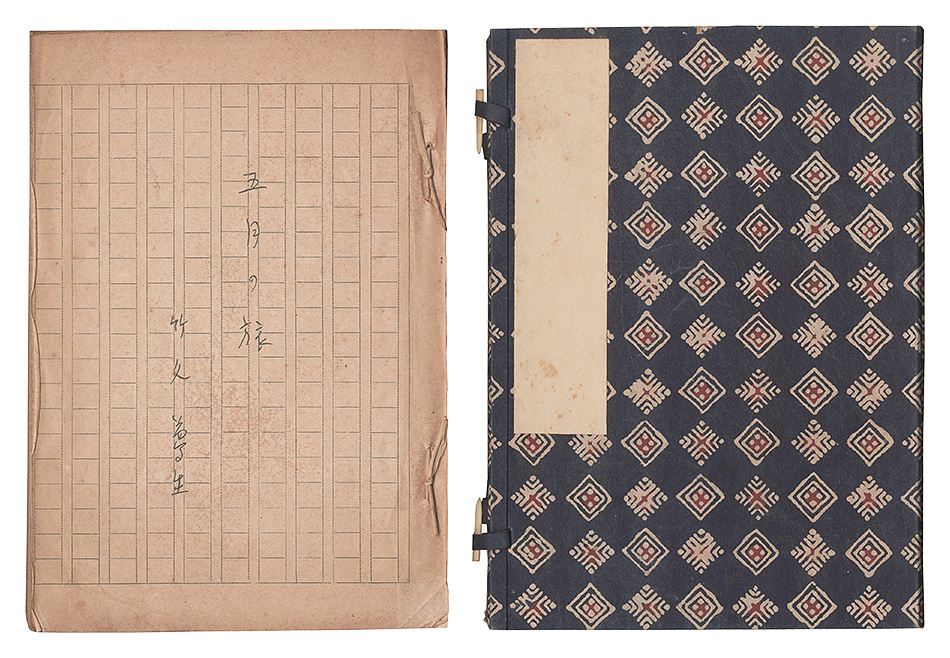 五月の旅
竹久夢生